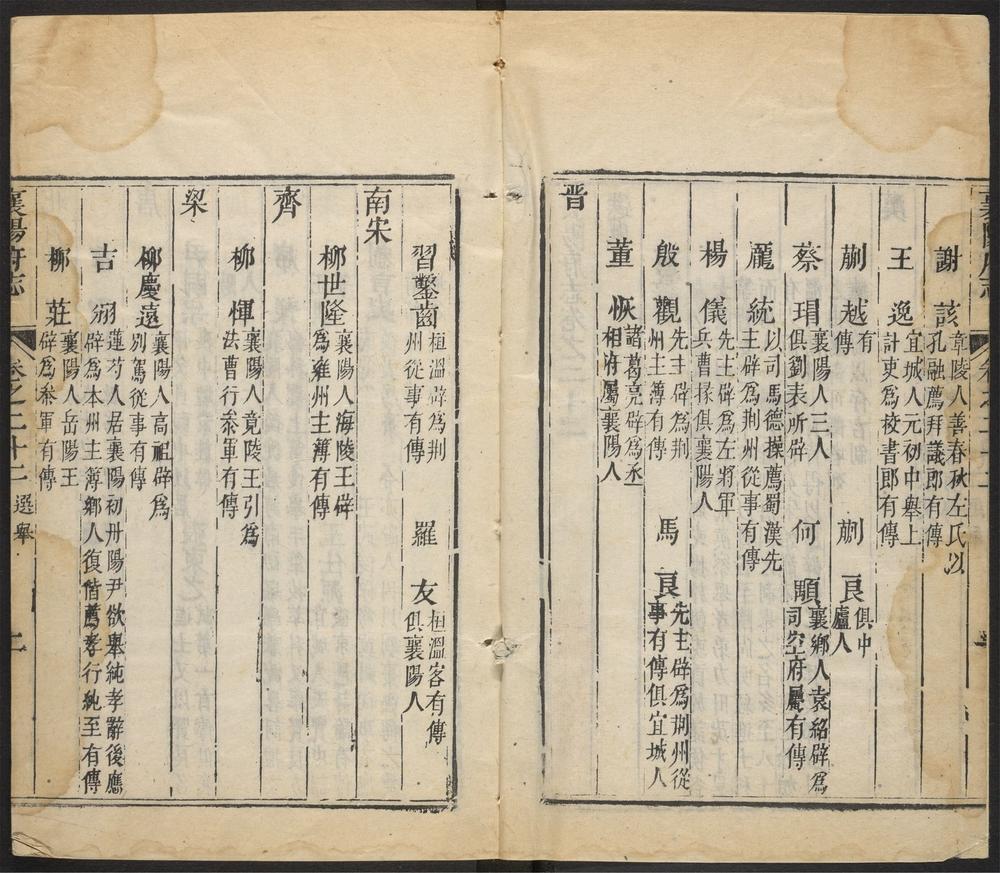 謝該 章陵人善春秋左氏以孔融薦拜議郎有傳
王逸 宜城人元初中舉上計吏爲校書郎有傳
蒯越 有傳 蒯良 俱中廬人
蔡瑁 襄陽人三人俱劉表所辟 何顒 襄鄉人袁紹辟爲司空府屬有傳
龎統 以司馬德操薦蜀漢先主辟爲荆州從事有傳
楊儀 先主辟爲左將軍兵曹掾俱襄陽人
殷觀 先主辟爲荆州主簿有傳 馬良 先主辟爲荆州從事有傳俱宜城人
董恢 諸葛亮辟爲丞相府屬襄陽人
晋
習鑿齒 桓溫辟爲荆州從事有傳 羅友 桓溫客有傳俱襄陽人
南宋
柳世隆 襄陽人海陵王辟爲雍州主簿有傳
齊
柳惲 襄陽人竟陵王引爲法曹行叅軍有傳
梁
柳慶遠 襄陽人高祖辟爲別駕從事有傳
吉翂 蓮芍人居襄陽初丹陽尹欲舉純孝辭後應辟爲本州主簿鄉人復偹薦孝行純至有傳
柳莊 襄陽人岳陽王辟爲叅軍有傳
襄陽府志 卷之二十二 選舉 二